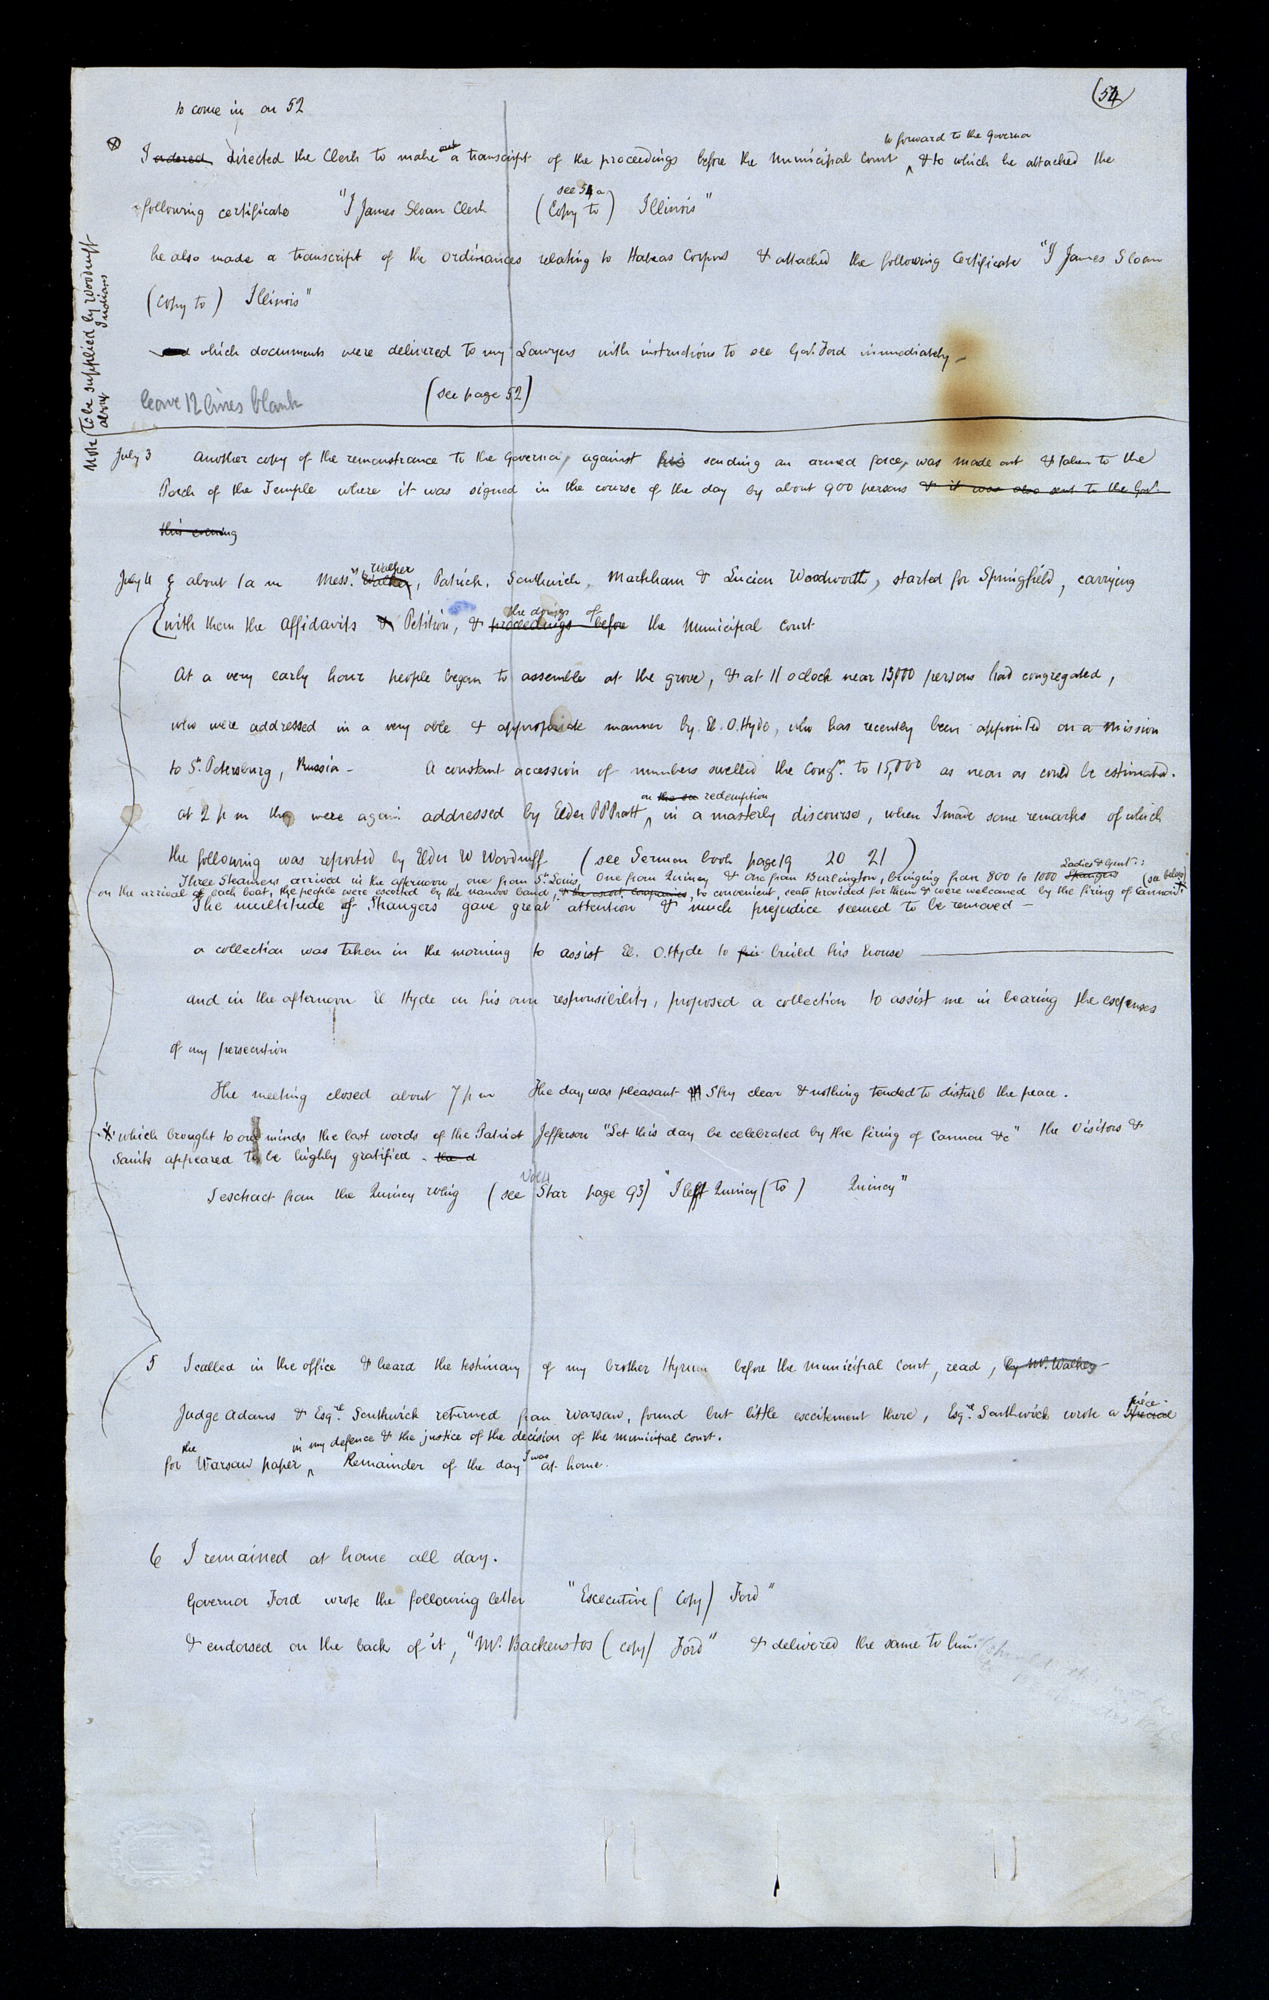 (54)
to come in on 52
I ordered directed the Clerk to make out a transcript of the proceedings before the Municipal Court to forward to the Governor & to which he attached the
following certificate "I James Sloan Clerk (see 54 a Copy to) Illinois"
he also made a transcript of the ordinances relating to Habeas Corpus & attached the following Certificate "I James Sloan
(Copy to) Illinois"
which documents were delivered to my Lawyers with instructions to see Gov. Ford immediately —
leave 12 lines blank (see page 52)
Note (To be supplied by Woodruff
abt Indians
July 3 Another copy of the remonstrance to the Governor, against his sending an armed force, was made out & taken to the
Porch of the Temple where it was signed in the course of the day by about 900 persons & it was also sent to the Govr.
this evening
July 4 about 1 a m Messrs. Walker Walker, Patrick, Southwick, Markham & Lucien Woodworth, started for Springfield, carrying
with them the affidavits & Petition, & proceedings before the doings of the Municipal Court
At a very early hour people began to assemble at the grove, & at 11 oclock near 13,000 persons had congregated,
who were addressed in a very able & appropriate manner by El. O. Hyde, who has recently been appointed on a mission
to St. Petersburg, Russia — A constant accession of numbers swelled the Congn. to 15,000 as near as could be estimated.
at 2 p m they were again addressed by Elder P P Pratt on the redemption in a masterly discourse, when I made some remarks of which
the following was reported by Elder W Woodruff (see Sermon book page 19 20 21)
Three Steamers arrived in the afternoon, one from St. Louis, One from Quincy, & one from Burlington, bringing from 800 to 1000 Strangers Ladies & Gentn.: (see below)
on the arrival of each boat, the people were escorted by the nauvoo band, & the escort companies, to convenient seats provided for them & were welcomed by the firing of Cannon
The multitude of Strangers gave great attention & much prejudice seemed to be removed —
a collection was taken in the morning to assist El. O. Hyde to his build his house
and in the afternoon El Hyde on his own responsibility, proposed a collection to assist me in bearing the expenses
of my persecution
The meeting closed about 7 p m The day was pleasant Sky clear & nothing tended to disturb the peace.
which brought to our minds the last words of the Patriot Jefferson "Let this day be celebrated by the firing of Cannon &c" the Visitors &
Saints appeared to be highly gratified. the d
I extract from the Quincy Whig (see Vol 4 Star page 93) "I left Quincy (to) Quincy"
5 I called in the office & heard the testimony of my brother Hyrum before the municipal court, read, by Mr. Walker
Judge Adams & Esqre. Southwick returned from Warsaw, found but little excitement there, Esqre. Southwick wrote a Special piece
for the Warsaw paper in my defence & the justice of the decision of the municipal court. Remainder of the day I was at home.
6 I remained at home all day.
Governor Ford wrote the following letter "Executive (Copy) Ford"
& endorsed on the back of it, "Mr. Backenstos (copy) Ford" & delivered the same to him.